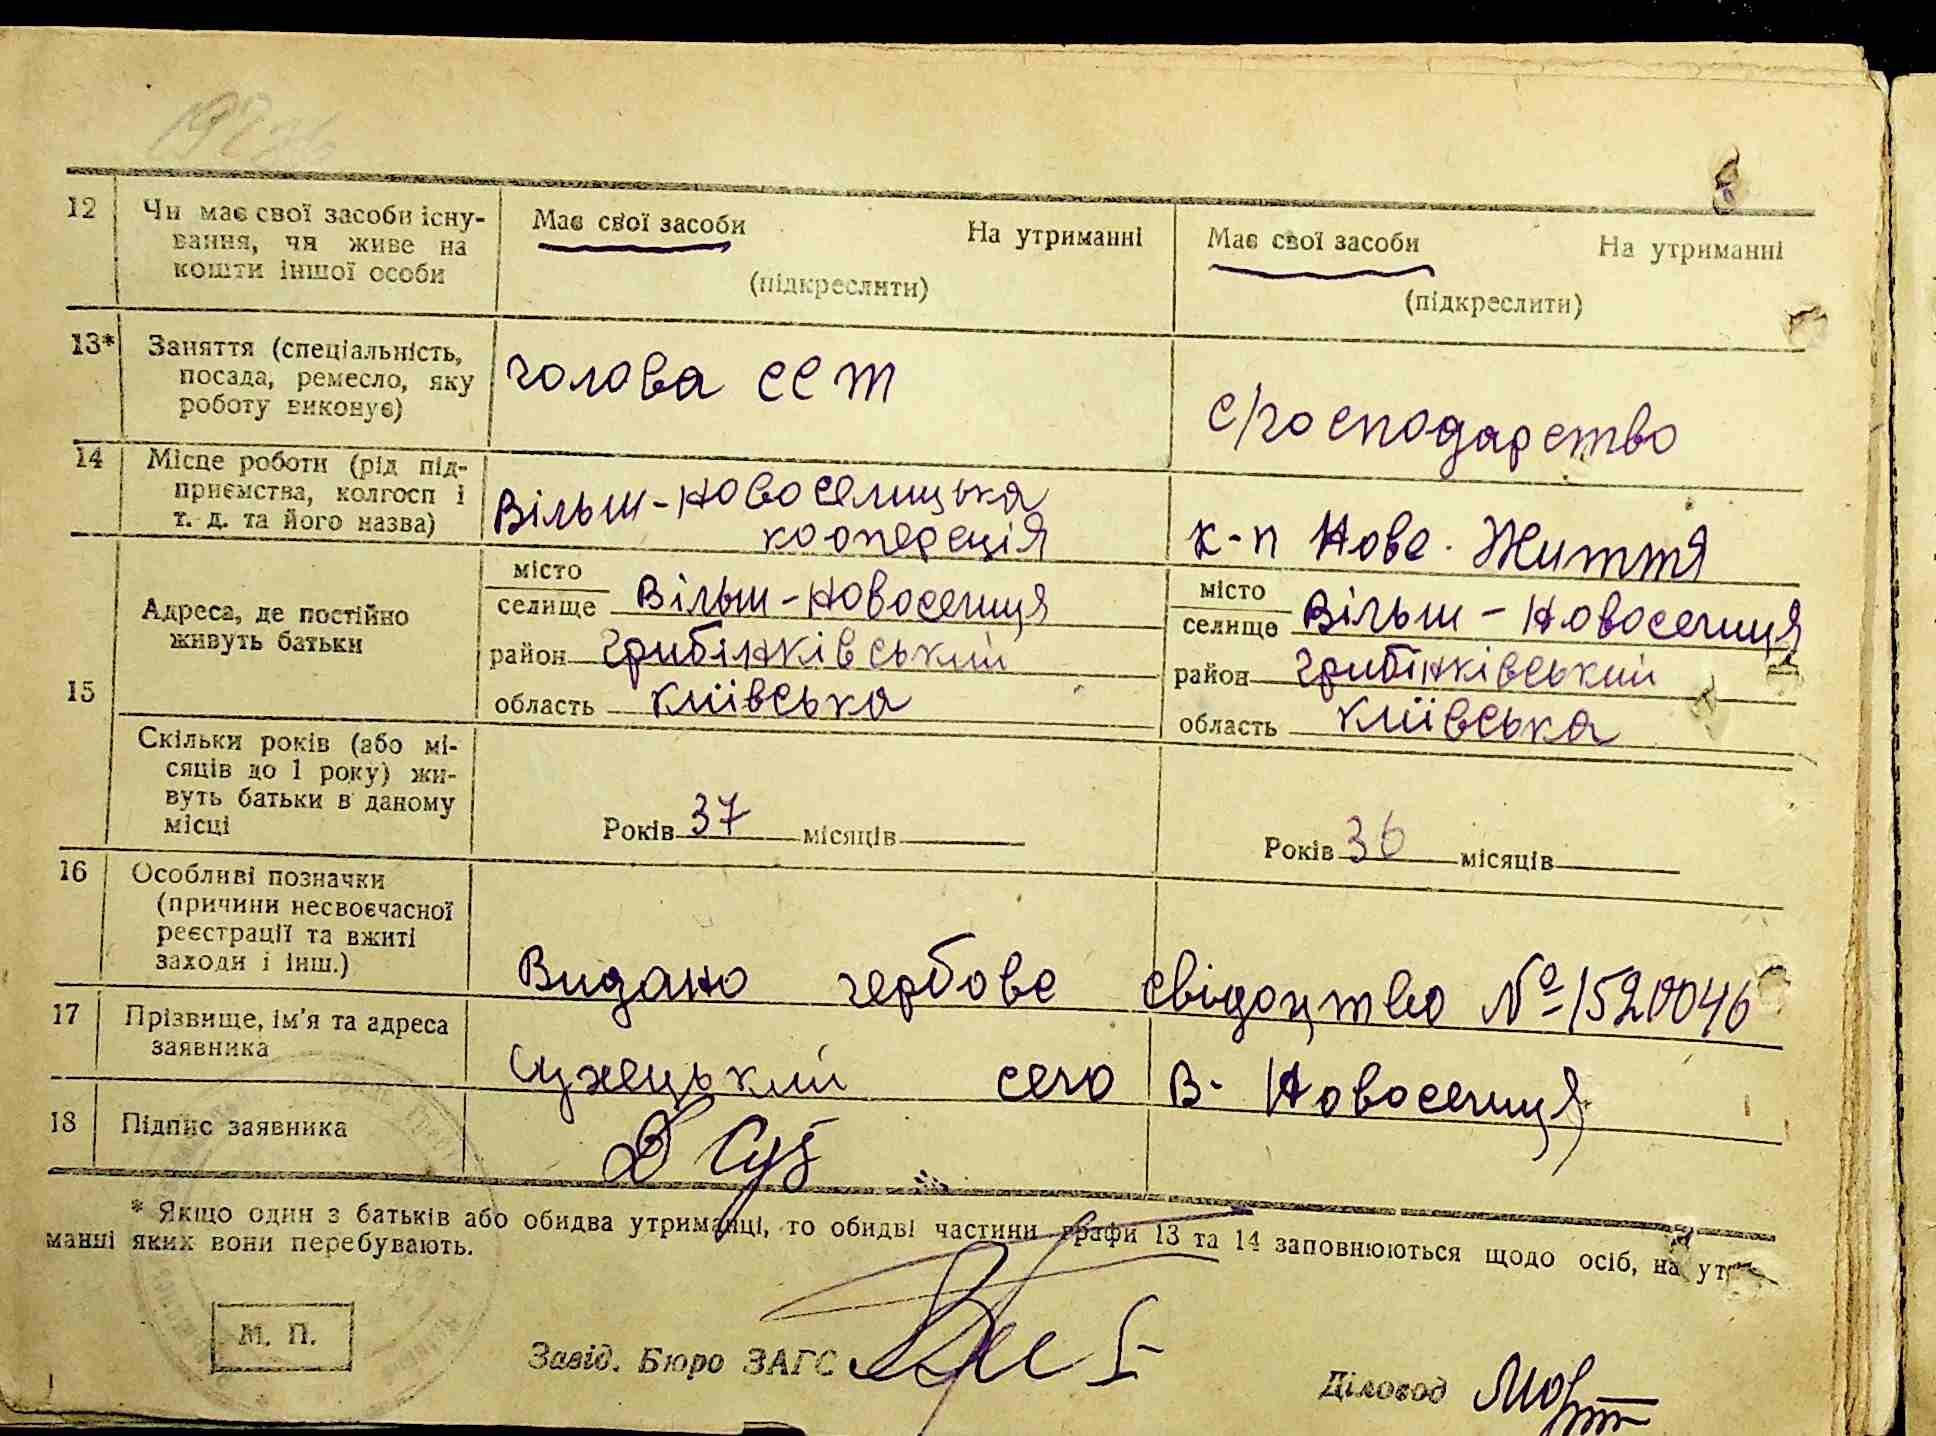 12 Чи має свої засоби існу-
вання, чи живе на
кошти іншої особи
Має свої засоби На утриманні
(підкреслити)
Має свої засоби На утриманні
(підкреслити)
13* Заняття (спеціальність,
посада, ремесло, яку
роботу виконує)
голова ССТ
с/господарство
14 Місце роботи (рід під-
приємства, колгосп і
т. д. та його назва)
Вільш-Новоселицька
кооперація
к-п Нове Життя
15 Адреса, де постійно
живуть батьки
місто
селище Вільш-Новоселиця
район Гребінківський
область Київська
місто
селище Вільш-Новоселиця
район Гребінківський
область Київська
Скільки років (або мі-
сяців до 1 року) жи-
вуть батьки в даному
місці
Років 37 місяців
Років 36 місяців
16 Особливі позначки
(причини несвоєчасної
реєстрації та вжиті
заходи і інш.)
Видано гербове свідоцтво № 1520046
17 Прізвище, ім'я та адреса
заявника
село В-Новоселиця
18 Підпис заявника
* Якщо один з батьків або обидва утриманці, то обидві частини графи 13 та 14 заповнюються щодо осіб, на ут
манні яких вони перебувають.
М. П.
Завід. Бюро ЗАГС
Діловод